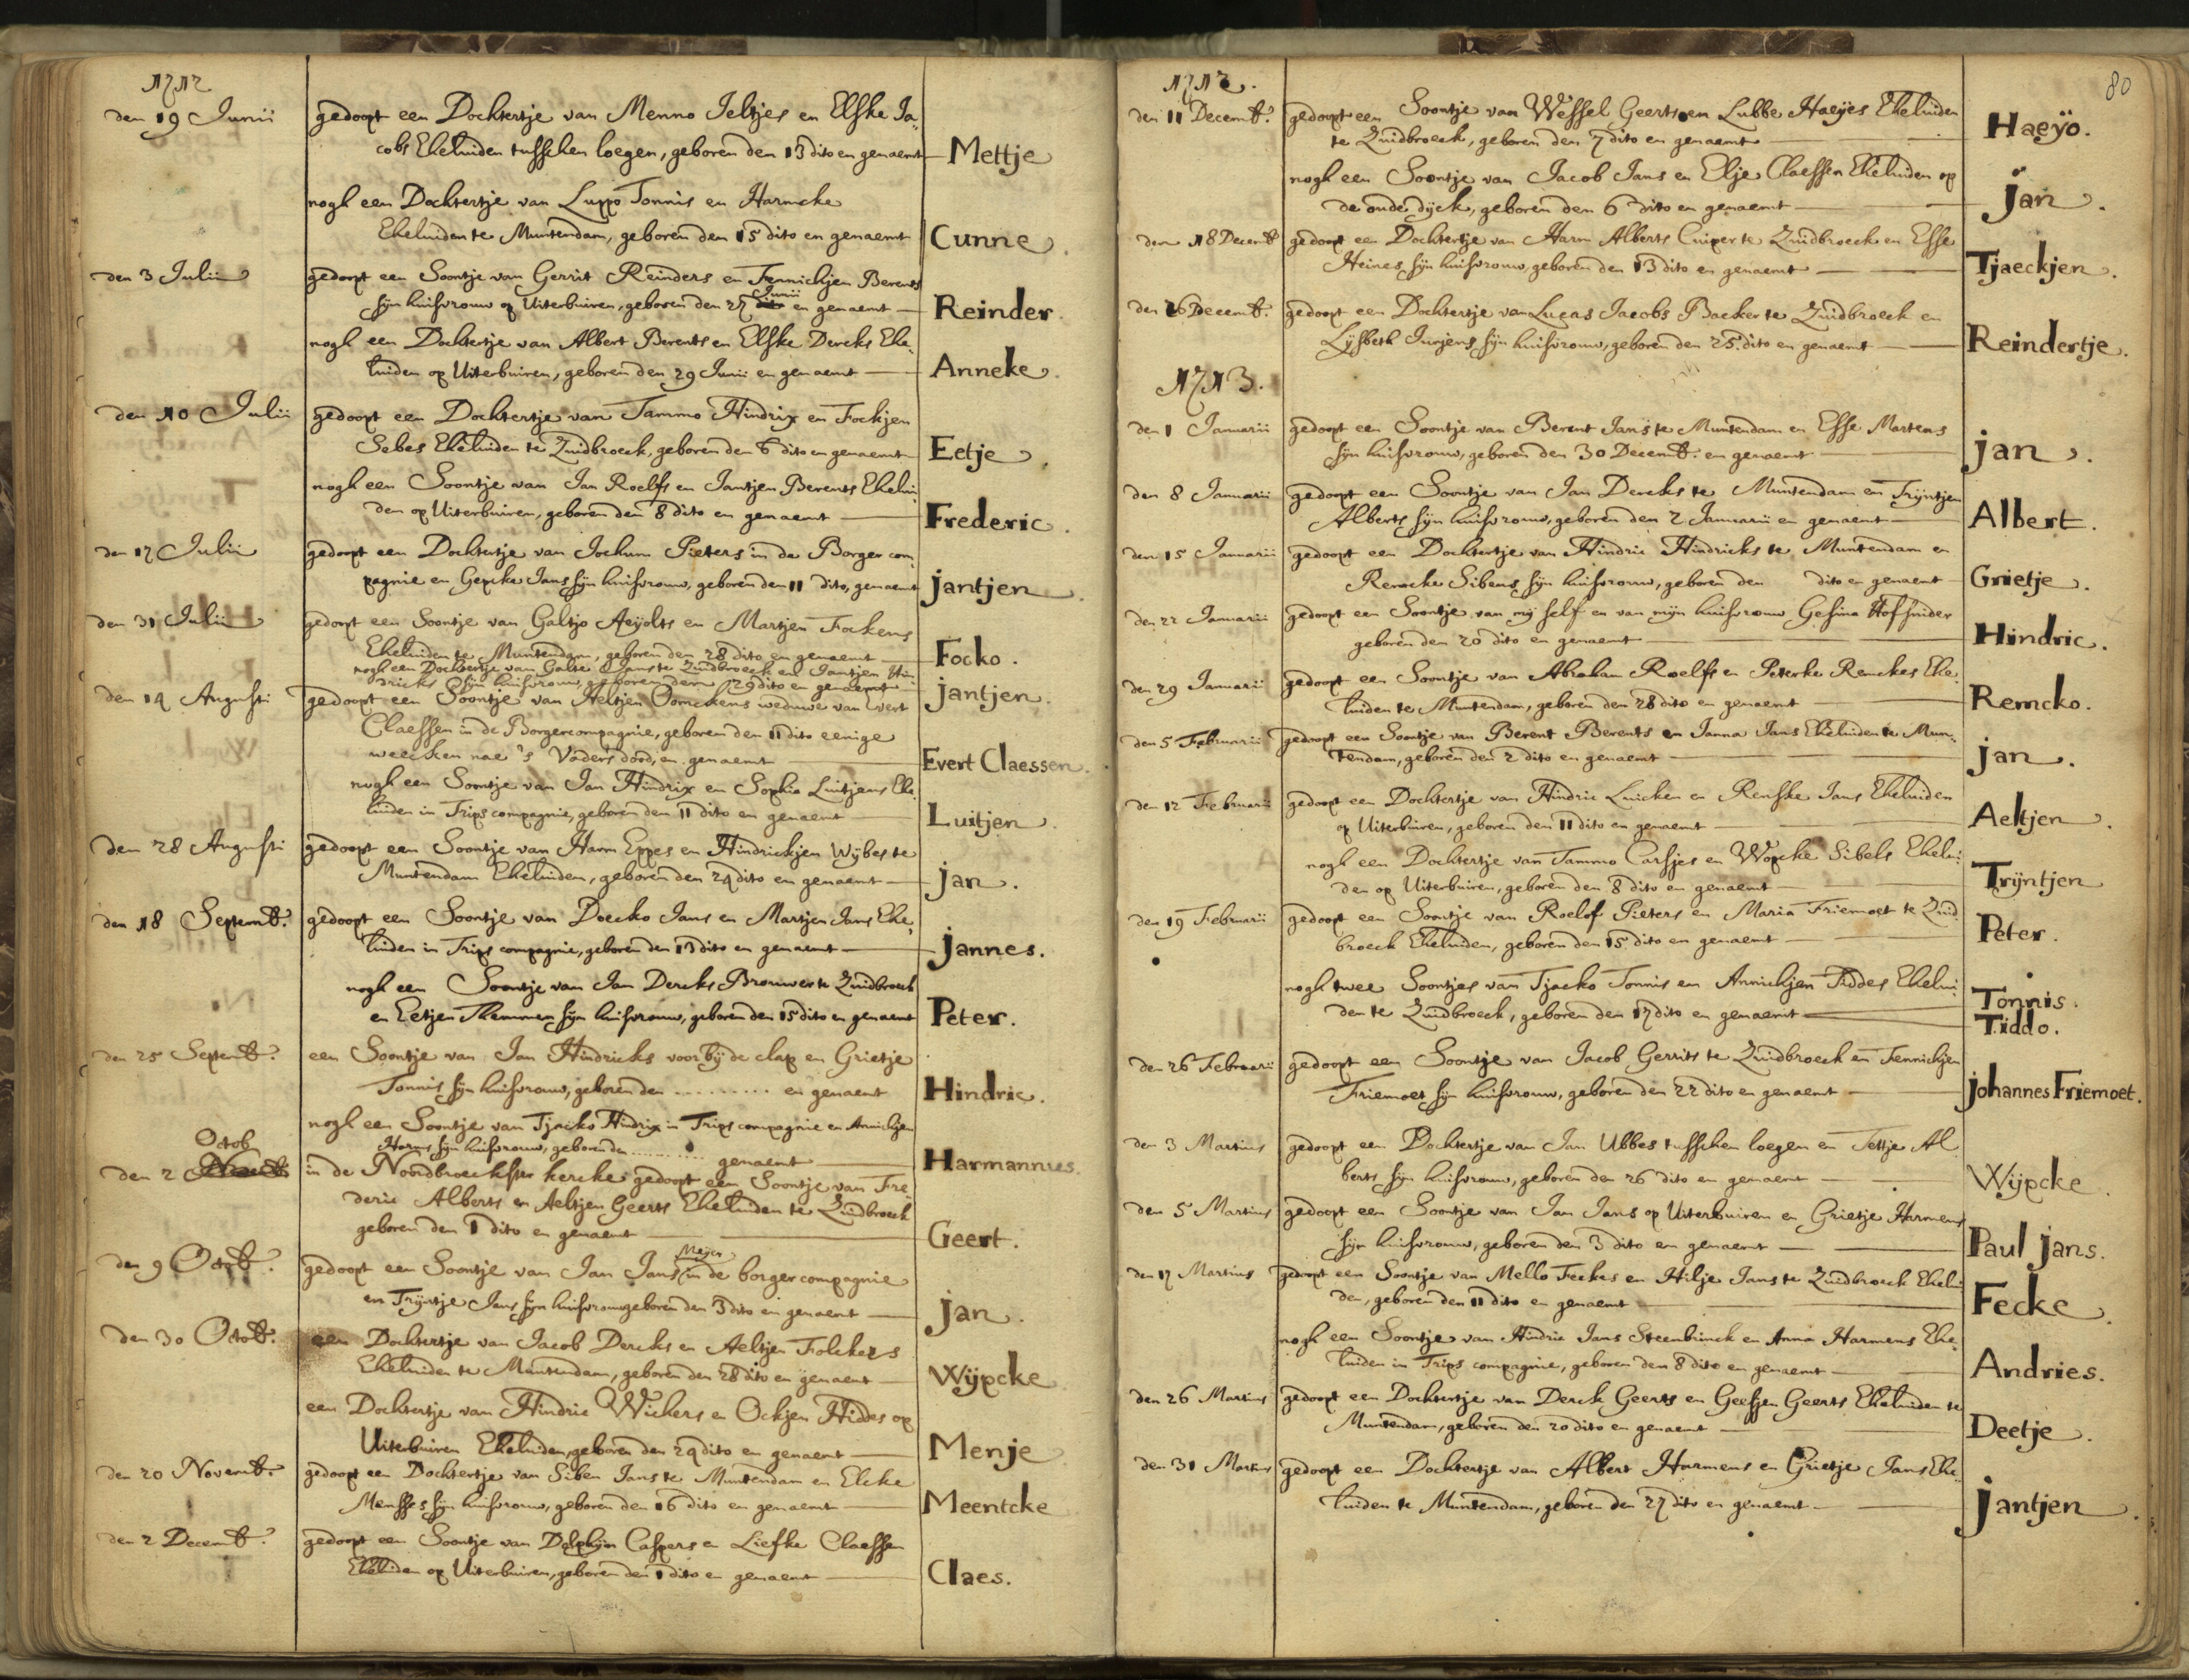 1712
den 19 Junii gedoopt een Dochtertje van Menno Jeltjes en Elske Ja-
cobs Eheluiden tusschen loegen, geboren den 13 dito en genaemt Mettje
nogh een Dochtertje van Luppo Tonnis en Harmcke
Eheluiden te Muntendam, geboren den 15 dito en genaemt Cunne.
den 3 Julii gedoopt een Soontje van Gerrit Reinders en Fennichjen Berents
Junii
sijn huisvrouw op Uiterbuiren, geboren den 27 dito en genaemt Reinder.
nogh een Dochtertje van Albert Berents en Elske Dercks Ehe-
luiden op Uiterbuiren, geboren den 29 Junii en genaemt Anneke.
den 10 Julii gedoopt een Dochtertje van Tammo Hindrix en Fockjen
Sebes Eheluiden te Zuidbroeck, geboren den 6 dito en genaemt Eetje.
nogh een Soontje van Jan Roelfs en Jantjen Berents Ehelui-
den op Uiterbuiren, geboren den 8 dito en genaemt Frederic.
den 17 Julii gedoopt een Dochtertje van Jochum Pieters in de Borger com-
pagnie en Gepcke Jans sijn huisvrouw, geboren den 11 dito, genaemt jantjen.
den 31 Julii gedoopt een Soontje van Galtjo Aeijolts en Martjen Fockens
Eheluiden te Muntendam, geboren den 28 dito en genaemt Focko.
nogh een Dochtertje van Galte Jans te Zuidbroeck en Jantjen Hin-
dricks sijn huisvrouw, geboren den 29 dito en genaemt jantjen.
den 14 Augusti gedoopt een Soontje van Aeltjen Oomckens weduwe van Evert
Claessen in de Borgercompagnie, geboren den 11 dito eenige
weecken nae 's Vaders dood, en genaemt Evert Claessen.
nogh een Soontje van Jan Hindrix en Sophia Luitjens Ehe-
luiden in Trips compagnie, geboren den 11 dito en genaemt Luitjen.
den 28 Augusti gedoopt een Soontje van Harm Eppes en Hindrickjen Wijbes te
Muntendam Eheluiden, geboren den 24 dito en genaemt jan.
den 18 Septemb. gedoopt een Soontje van Doecko Jans en Martjen Jans Ehe-
luiden in Trips compagnie, geboren den 13 dito en genaemt jannes.
nogh een Soontje van Jan Dercks Brouwer te Zuidbroeck
en Eetjen Themmen sijn huisvrouw, geboren den 15 dito en genaemt Peter.
den 25 Septemb. een Soontje van Jan Hindricks voorbij de clap en Grietje
Tonnis sijn huisvrouw, geboren den .......... en genaemt Hindric.
nogh een Soontje van Tjacko Hindrix in Trips compagnie en Annichjen
Harms sijn huisvrouw, geboren den .......... genaemt Harmannus.
Octob
den 2 in de Noordbroeckster kercke gedoopt een Soontje van Fre-
deric Alberts en Aeltjen Geerts Eheluiden te Zuidbroeck
geboren den 1 dito en genaemt Geert.
Meijer
den 9 Octob. gedoopt een Soontje van Jan Jans in de borger compagnie
en Trijntje Jans sijn huisvrouw geboren den 3 dito en genaemt jan.
den 30 Octob. een Dochtertje van Jacob Dercks en Aeltjen Folckers
Eheluiden te Muntendam, geboren den 28 dito en genaemt Wijpcke
een Dochtertje van Hindric Wichers en Ockjen Hiddes op
Uiterbuiren Eheluiden, geboren den 24 dito en genaemt Menje
den 20 Novemb. gedoopt een Dochtertje van Siben Jans te Muntendam en Elcke
Mensses sijn huisvrouw, geboren den 16 dito en genaemt Meentcke
den 2 Decemb. gedoopt een Soontje van Dolphijn Caspers en Liefke Claessen
Eheluiden op Uiterbuiren, geboren den 1 dito en genaemt Claes.
80
1712.
den 11 Decemb. gedoopt een Soontje van Wessel Geerts en Lubbe Haeijes Eheluiden
te Zuidbroeck, geboren den 7 dito en genaemt Haeijo.
nogh een Soontje van Jacob Jans en Elje Claessen Eheluiden op
de oude dijck, geboren den 6 dito en genaemt jan.
den 18 Decemb gedoopt een Dochtertje van Harm Alberts Cuiper te Zuidbroeck en Esse
Heines sijn huisvrouw, geboren den 13 dito en genaemt Tjaeckjen.
den 26 Decemb. gedoopt een Dochtertje van Lucas Jacobs Backer te Zuidbroeck en
Lijsbeth Jurjens sijn huisvrouw, geboren den 25 dito en genaemt Reindertje.
1713.
den 1 Januarii gedoopt een Soontje van Berent Jans te Muntendam en Esse Martens
sijn huisvrouw, geboren den 30 Decemb. en genaemt jan.
den 8 Januarii gedoopt een Soontje van Jan Dercks te Muntendam en Trijntjen
Alberts sijn huisvrouw, geboren den 2 Januarii en genaemt Albert.
den 15 Januarii gedoopt een Dochtertje van Hindric Hindricks te Muntendam en
Remcke Sibens sijn huisvrouw, geboren den dito en genaemt Grietje.
den 22 Januarii gedoopt een Soontje van mij self en van mijn huisvrouw Gesina Hofsnider
geboren den 20 dito en genaemt Hindric.
den 29 Januarii gedoopt een Soontje van Abraham Roelfs en Peterke Remckes Ehe-
luiden te Muntendam, geboren den 28 dito en genaemt Remcko.
den 5 Februarii gedoopt een Soontje van Berent Berents en Janna Jans Eheluiden te Mun-
tendam, geboren den 2 dito en genaemt jan.
den 12 Februarii gedoopt een Dochtertje van Hindric Luicken en Renske Jans Eheluiden
op Uiterbuiren, geboren den 11 dito en genaemt Aeltjen.
nogh een Dochtertje van Tammo Carsjes en Wopcke Sibels Ehelui-
den op Uiterbuiren, geboren den 8 dito en genaemt Trijntjen
den 19 Februarii gedoopt een Soontje van Roelof Pieters en Maria Friemoet te Zuid
broeck Eheluiden, geboren den 15 dito en genaemt Peter.
nogh twee Soontjes van Tjacko Tonnis en Annichjen Tiddes Ehelui- Tonnis.
den te Zuidbroeck, geboren den 17 dito en genaemt Tiddo.
den 26 Februarii gedoopt een Soontje van Jacob Gerrits te Zuidbroeck en Fennichjen
Friemoet sijn huisvrouw, geboren den 22 dito en genaemt johannes Friemoet.
den 3 Martius gedoopt een Dochtertje van Jan Ubbes tusschen loegen en Tettje Al
berts sijn huisvrouw, geboren den 26 dito en genaemt Wijpcke.
den 5 Martius gedoopt een Soontje van Jan Jans op Uiterbuiren en Grietje Harmens
sijn huisvrouw, geboren den 3 dito en genaemt Paul jans.
den 17 Martius gedoopt een Soontje van Mello Feckes en Hilje Jans te Zuidbroeck Ehelui
den, geboren den 11 dito en genaemt Fecke.
nogh een Soontje van Hindric Jans Steenbrinck en Anna Harmens Ehe-
luiden in Trips compagnie, geboren den 8 dito en genaemt Andries.
den 26 Martius gedoopt een Dochtertje van Derck Geerts en Geesjen Geerts Eheluiden te
Muntendam, geboren den 20 dito en genaemt Deetje.
den 31 Martius gedoopt een Dochtertje van Albert Harmens en Grietje Jans Ehe-
luiden te Muntendam, geboren den 27 dito en genaemt jantjen.